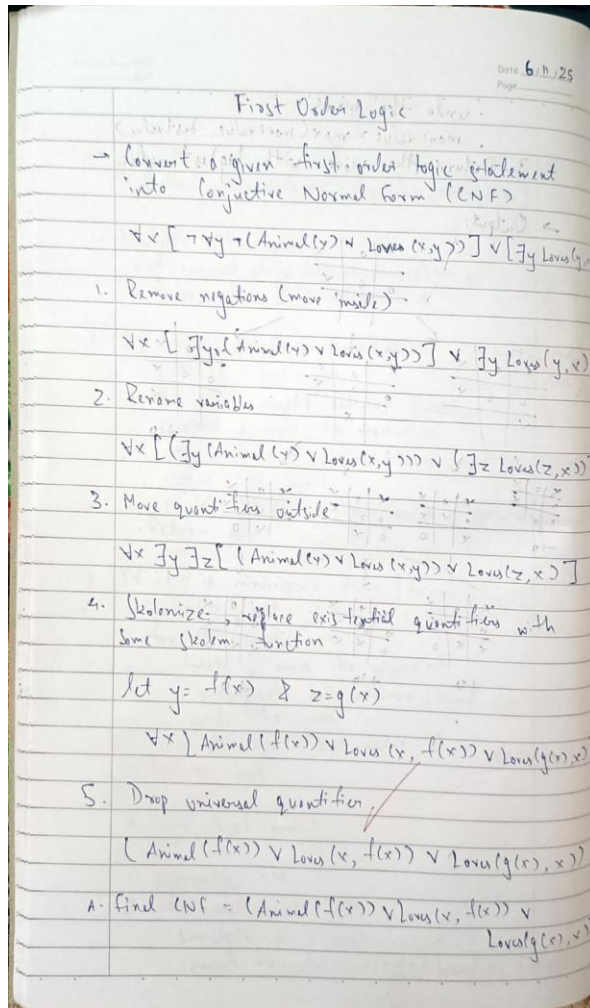 Date 6/11/25
Page
First Order Logic
→ Convert a given first-order logic statement
into Conjuctive Normal Form (CNF)
∀x [ ¬∀y ¬(Animal(y) ∨ Loves (x,y))] ∨ [∃y Loves(y,
1. Remove negations (move inside)
∀x [ ∃y (Animal(y) ∨ Loves(x,y))] ∨ ∃y Loves(y,x)
2. Rename variables
∀x [(∃y (Animal(y) ∨ Loves(x,y))) ∨ (∃z Loves(z,x))
3. Move quantifiers outside
∀x ∃y ∃z [ (Animal(y) ∨ Loves(x,y)) ∨ Loves(z,x)]
4. Skolemize, replace existential quantifiers with
some skolem function
let y = f(x) & z = g(x)
∀x [Animal(f(x)) ∨ Loves (x, f(x)) ∨ Loves(g(x),x)
5. Drop universal quantifier
(Animal(f(x)) ∨ Loves(x, f(x)) ∨ Loves(g(x), x))
A. final CNF = (Animal(f(x)) ∨ Loves(x, f(x)) ∨
Loves(g(x),x)